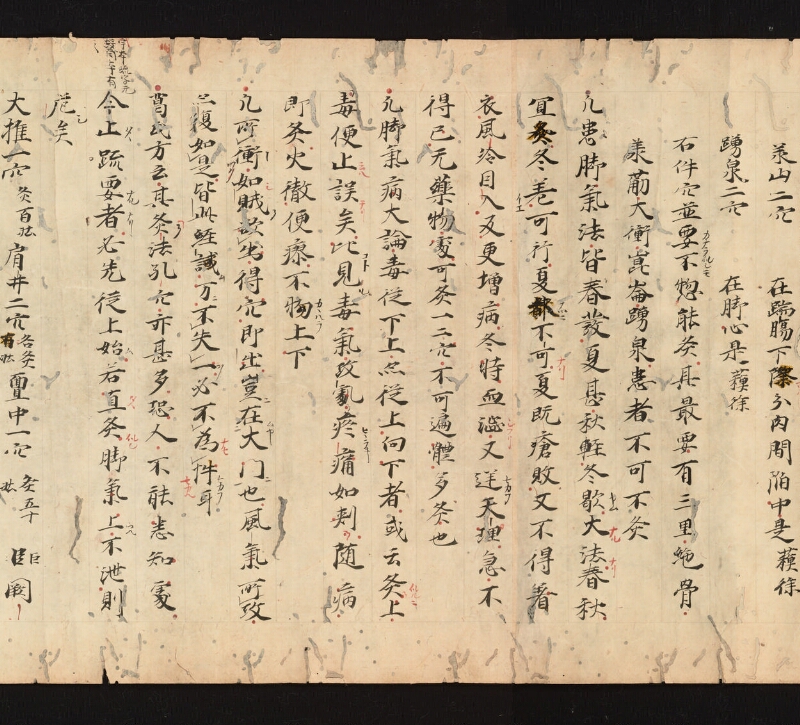 承山二穴 在腨腸下際分肉間陥中是 蘇徐
踴泉二穴 在脚心是 蘇徐
右件穴並要不惣能灸其最要有三里絶骨
承筋大衝崑崙踴泉患者不可不灸
凡患脚氣法皆春發夏甚秋軽冬歇大法春秋
宜灸冬差可行夏都不可夏既瘡敗又不得着
衣風冷因入及更增病冬時血澁又逆天理急不
得已无藥物處可灸一二穴不可遍體多灸也
凡脚氣病大論毒従下上亦従上向下者或云灸上
毒便止誤矣比見毒氣攻處疼痛如刺随病
即灸火徹便療不物上下
凡所衝如賊欲出得穴即出豈在大門也風氣所攻
亦復如是皆此経誡万不失一必不為拌耳
葛氏方云其灸法孔穴亦甚多恐人不能悉知處
今止疏要者必先従上始若直灸脚氣上不泄則
危矣
大椎一穴 灸百壮 肩井二穴 各灸百壮 亶中一穴 灸五十壮 巨闕